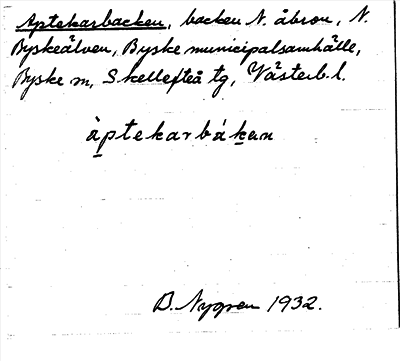 Aptekarbacken, backen N. åbron, N.
Byskeälven, Byske municipalsamhälle,
Byske sn, Skellefteå tg, Västerb. l.
àptekarbákan
B. Nygren 1932.